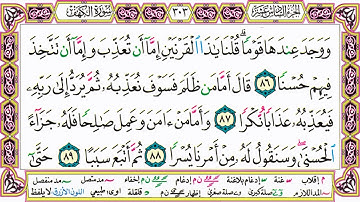 الجزء السادس عشر ٣٠٣ سورة الكهف
وَوَجَدَ عِندَهَا قَوْمًا ۗ قُلْنَا يَٰذَا ٱلْقَرْنَيْنِ إِمَّآ أَن تُعَذِّبَ وَإِمَّآ أَن تَتَّخِذَ
فِيهِمْ حُسْنًا ٨٦ قَالَ أَمَّا مَن ظَلَمَ فَسَوْفَ نُعَذِّبُهُۥ ثُمَّ يُرَدُّ إِلَىٰ رَبِّهِۦ
فَيُعَذِّبُهُۥ عَذَابًا نُّكْرًا ٨٧ وَأَمَّا مَنْ ءَامَنَ وَعَمِلَ صَٰلِحًا فَلَهُۥ جَزَآءً
ٱلْحُسْنَىٰ ۖ وَسَنَقُولُ لَهُۥ مِنْ أَمْرِنَا يُسْرًا ٨٨ ثُمَّ أَتْبَعَ سَبَبًا ٨٩ حَتَّىٰٓ